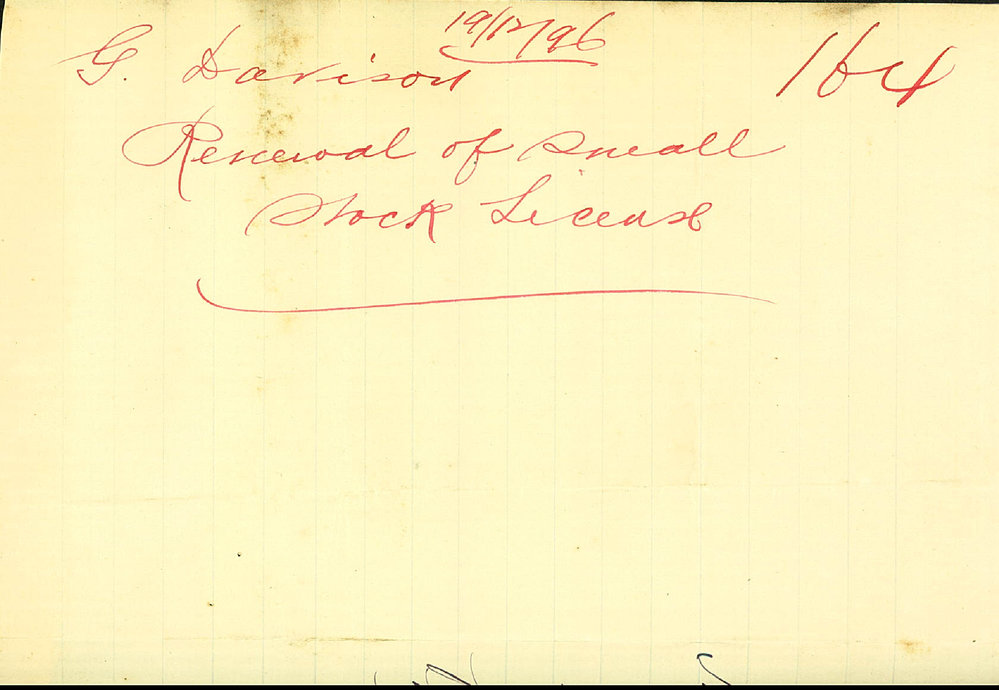 19/12/96
G. Davison 164
Renewal of Small
Stock License